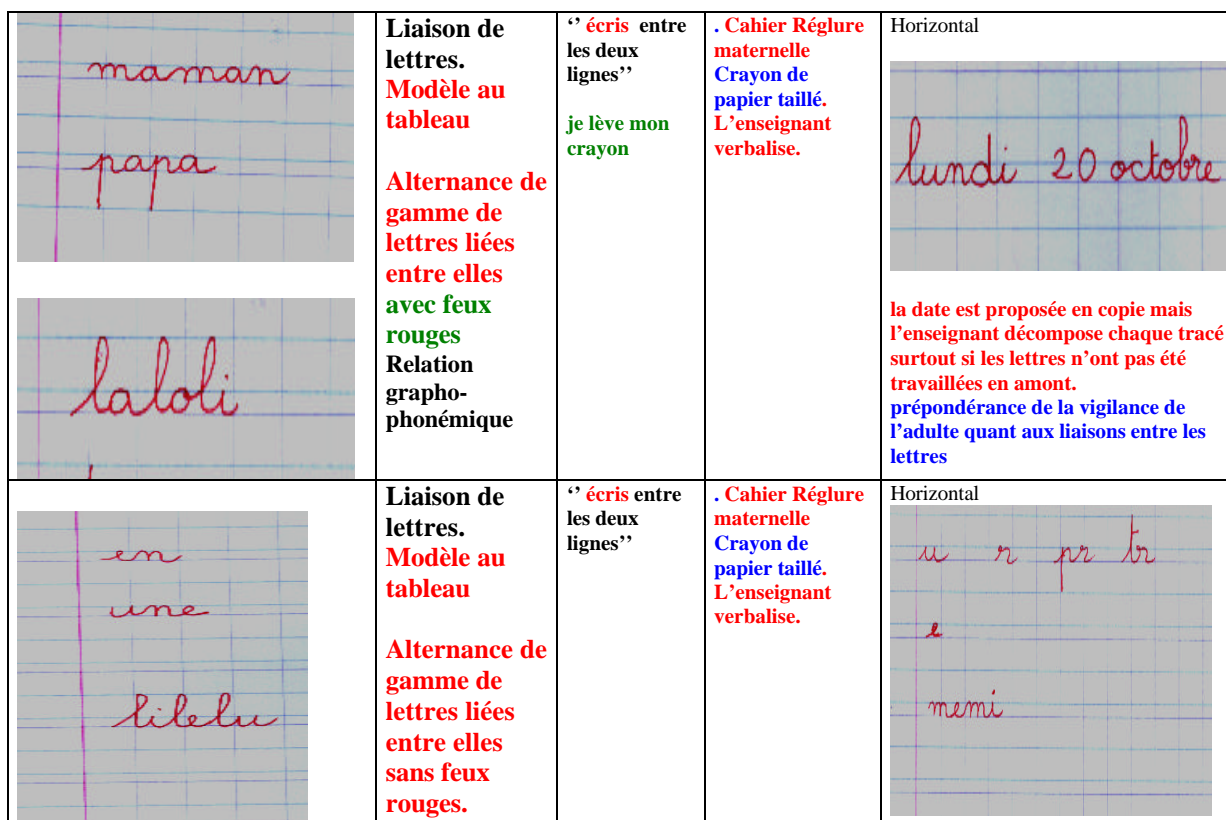 maman
papa
laloli
Liaison de
lettres.
Modèle au
tableau
Alternance de
gamme de
lettres liées
entre elles
avec feux
rouges
Relation
grapho-
phonémique
‘’ écris entre
les deux
lignes’’
je lève mon
crayon
. Cahier Réglure
maternelle
Crayon de
papier taillé.
L’enseignant
verbalise.
Horizontal
lundi 20 octobre
la date est proposée en copie mais
l’enseignant décompose chaque tracé
surtout si les lettres n’ont pas été
travaillées en amont.
prépondérance de la vigilance de
l’adulte quant aux liaisons entre les
lettres
en
une
lilelu
Liaison de
lettres.
Modèle au
tableau
Alternance de
gamme de
lettres liées
entre elles
sans feux
rouges.
‘’ écris entre
les deux
lignes’’
. Cahier Réglure
maternelle
Crayon de
papier taillé.
L’enseignant
verbalise.
Horizontal
u r pr tr
e
memi